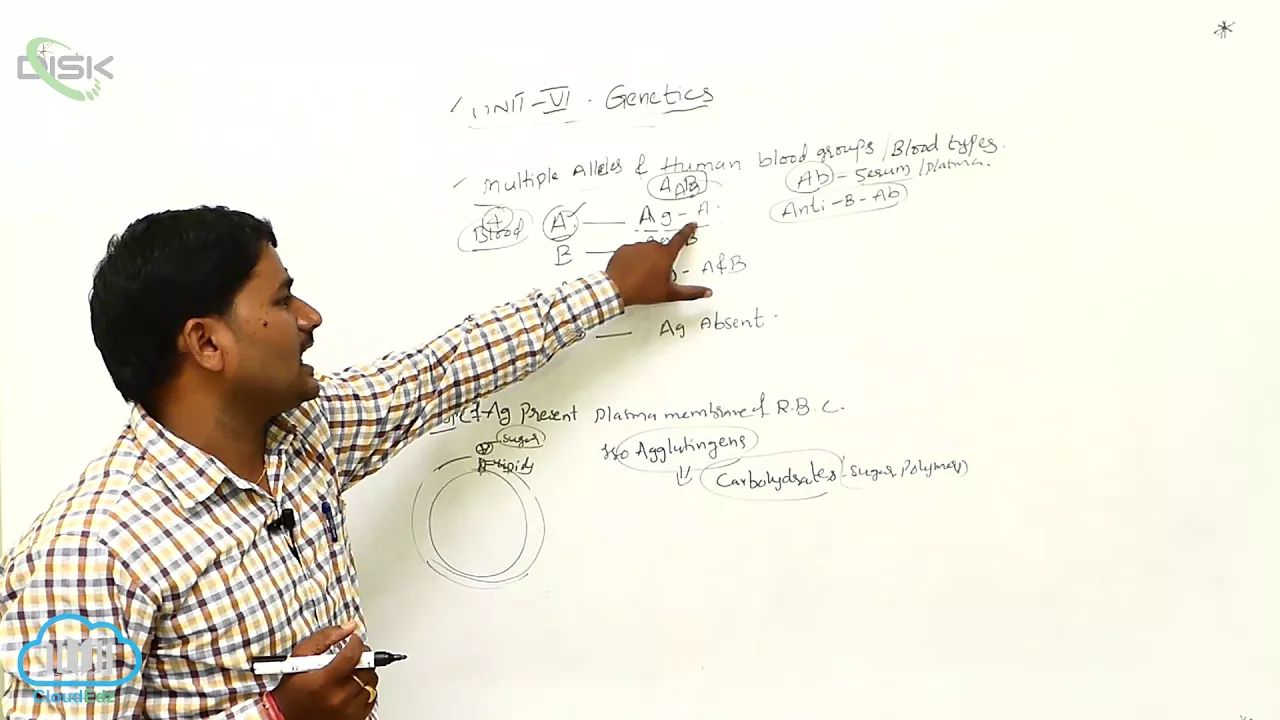 DISK
UNIT-VI. Genetics
Multiple Alleles & Human blood groups / Blood types.
Ab - Serum / Plasma.
Anti-B-Ab
Blood A — Ag - A
B —
- A&B
— Ag Absent.
Ag Present Plasma membrane of R.B.C.
sugar
lipids
Iso Agglutingens
Carbohydrates (sugar Polymers)
CloudEdz